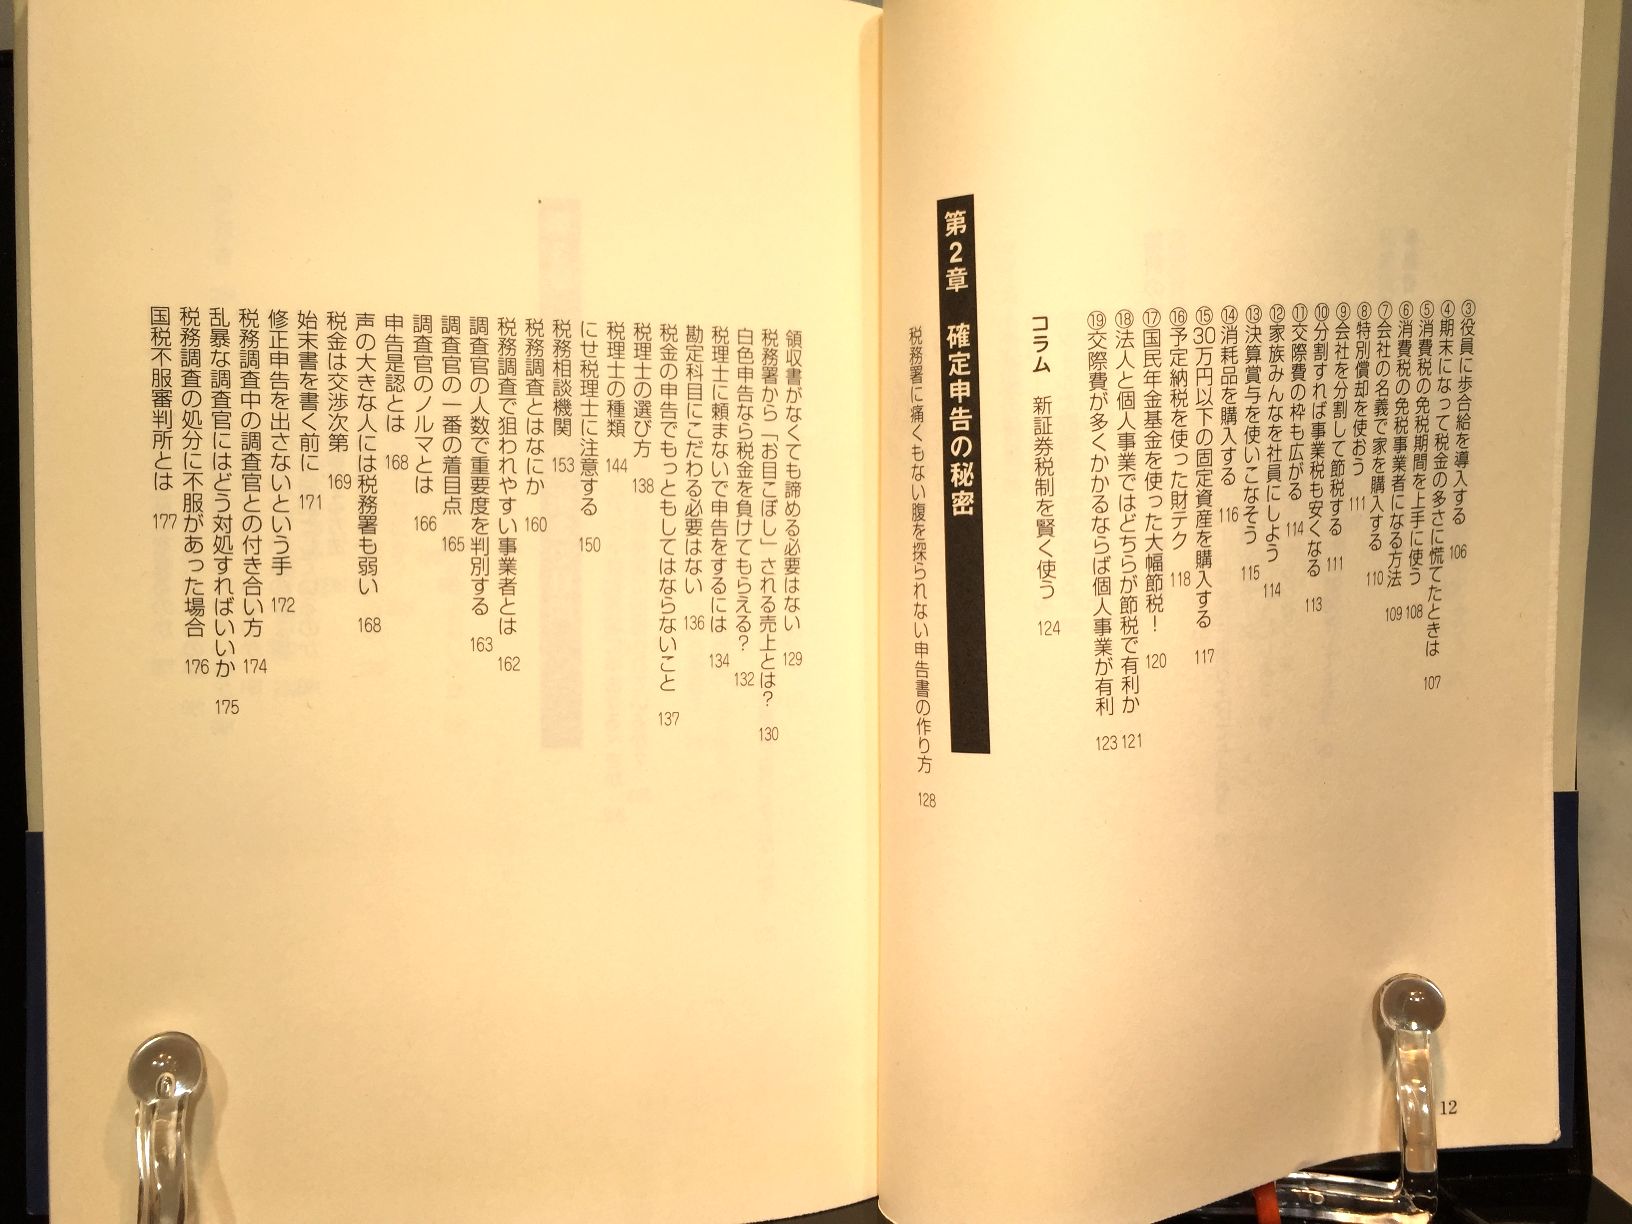 ③役員に歩合給を導入する 106
④期末になって税金の多さに慌てたときは 107
⑤消費税の免税期間を上手に使う 108
⑥消費税の免税事業者になる方法 109
⑦会社の名義で家を購入する 110
⑧特別償却を使おう 111
⑨会社を分割して節税する 111
⑩分割すれば事業税も安くなる 113
⑪交際費の枠も広がる 114
⑫家族みんなを社員にしよう 114
⑬決算賞与を使いこなそう 115
⑭消耗品を購入する 116
⑮30万円以下の固定資産を購入する 117
⑯予定納税を使った財テク 118
⑰国民年金基金を使った大幅節税! 120
⑱法人と個人事業ではどちらが節税で有利か 121
⑲交際費が多くかかるならば個人事業が有利 123
コラム 新証券税制を賢く使う 124
第2章 確定申告の秘密
税務署に痛くもない腹を探られない申告書の作り方 128
12
領収書がなくても諦める必要はない 129
税務署から「お目こぼし」される売上とは? 130
白色申告なら税金を負けてもらえる? 132
税理士に頼まないで申告をするには 134
勘定科目にこだわる必要はない 136
税金の申告でもっともしてはならないこと 137
税理士の選び方 138
税理士の種類 144
にせ税理士に注意する 150
税務相談機関 153
税務調査とはなにか 160
税務調査で狙われやすい事業者とは 162
調査官の人数で重要度を判別する 163
調査官の一番の着目点 165
調査官のノルマとは 166
申告是認とは 168
声の大きな人には税務署も弱い 168
税金は交渉次第 169
始末書を書く前に 171
修正申告を出さないという手 172
税務調査中の調査官との付き合い方 174
乱暴な調査官にはどう対処すればいいか 175
税務調査の処分に不服があった場合 176
国税不服審判所とは 177